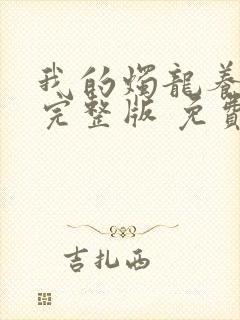 我的燭龍養
完整版 免費
吉扎西